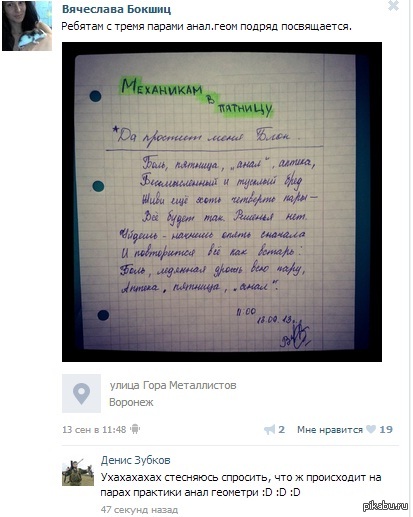 Вячеслава Бокшиц
Ребятам с тремя парами анал.геом подряд посвящается.
Механикам
в
пятницу
*Да простит меня Блок...
Боль, пятница, „анал“, аптека,
Бессмысленный и тусклый бред
Живи ещё хоть четверть пары—
Всё будет так. Решенья нет.
Уйдешь - начнёшь опять сначала
И повторится всё как встарь:
Боль, ледяная дрожь всю пару,
Аптека, пятница, „анал“.
11:00
13.09.13г.
улица Гора Металлистов
Воронеж
13 сен в 11:48
2
Мне нравится
19
Денис Зубков
Ухахахахах стесняюсь спросить, что ж происходит на
парах практики анал геометри :D :D :D
47 секунд назад
pikabu.ru